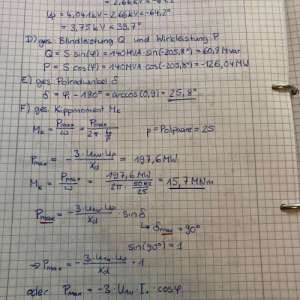 Up = 4,04kV - 2,66kV e^-64,2°
= 3,75kV 39,7°
D) ges. Blindleistung Q und Wirkleistung P
Q = S sin(φ) = 140MVA sin(-205,8°) = 60,9 Mvar
P = S cos(φ) = 140MVA cos(-205,8°) = -126,04MW
E) ges. Polradwinkel δ
δ = φ - 180° = arccos(0,9) = 25,8°
F) ges. Kippmoment Mk
Mk = Pmax/ω = Pmax/2π f/p p = Polpaare = 25
Pmax = - 3·UN·Up/Xd = 197,6 MW
Mk = Pmax/ω = 197,6MW/2π · 50Hz/25 = 15,7 MNm
Pmax = - 3·UN·Up/Xd · sin δ
↳ δmax = 90°
sin(90°) = 1
⇒ Pmax = - 3·UN·Up/Xd · 1
oder Pmax = -3· · cosφ